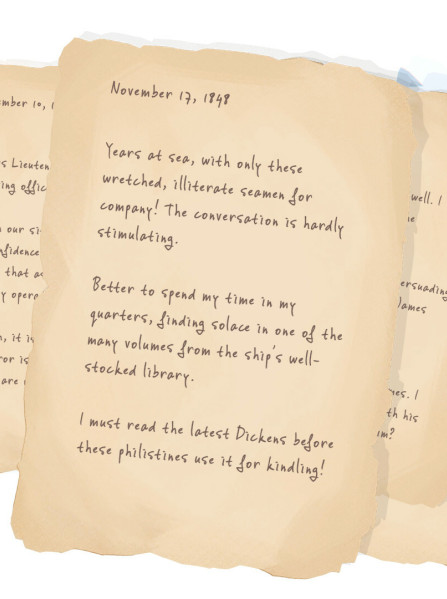 November 17, 1848
Years at sea, with only these
wretched, illiterate seamen for
company! The conversation is hardly
stimulating.
Better to spend my time in my
quarters, finding solace in one of the
many volumes from the ship's well-
stocked library.
I must read the latest Dickens before
these philistines use it for kindling!
mber 10, 1
s Lieuten
ing offic
our si
nfidence
that a
y opera
, it is
ror is
are
well. I
ersuading
James
yes. I
th his
um?